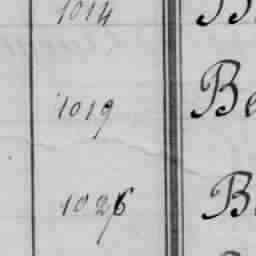 1014 B
1019 Be
1026 B